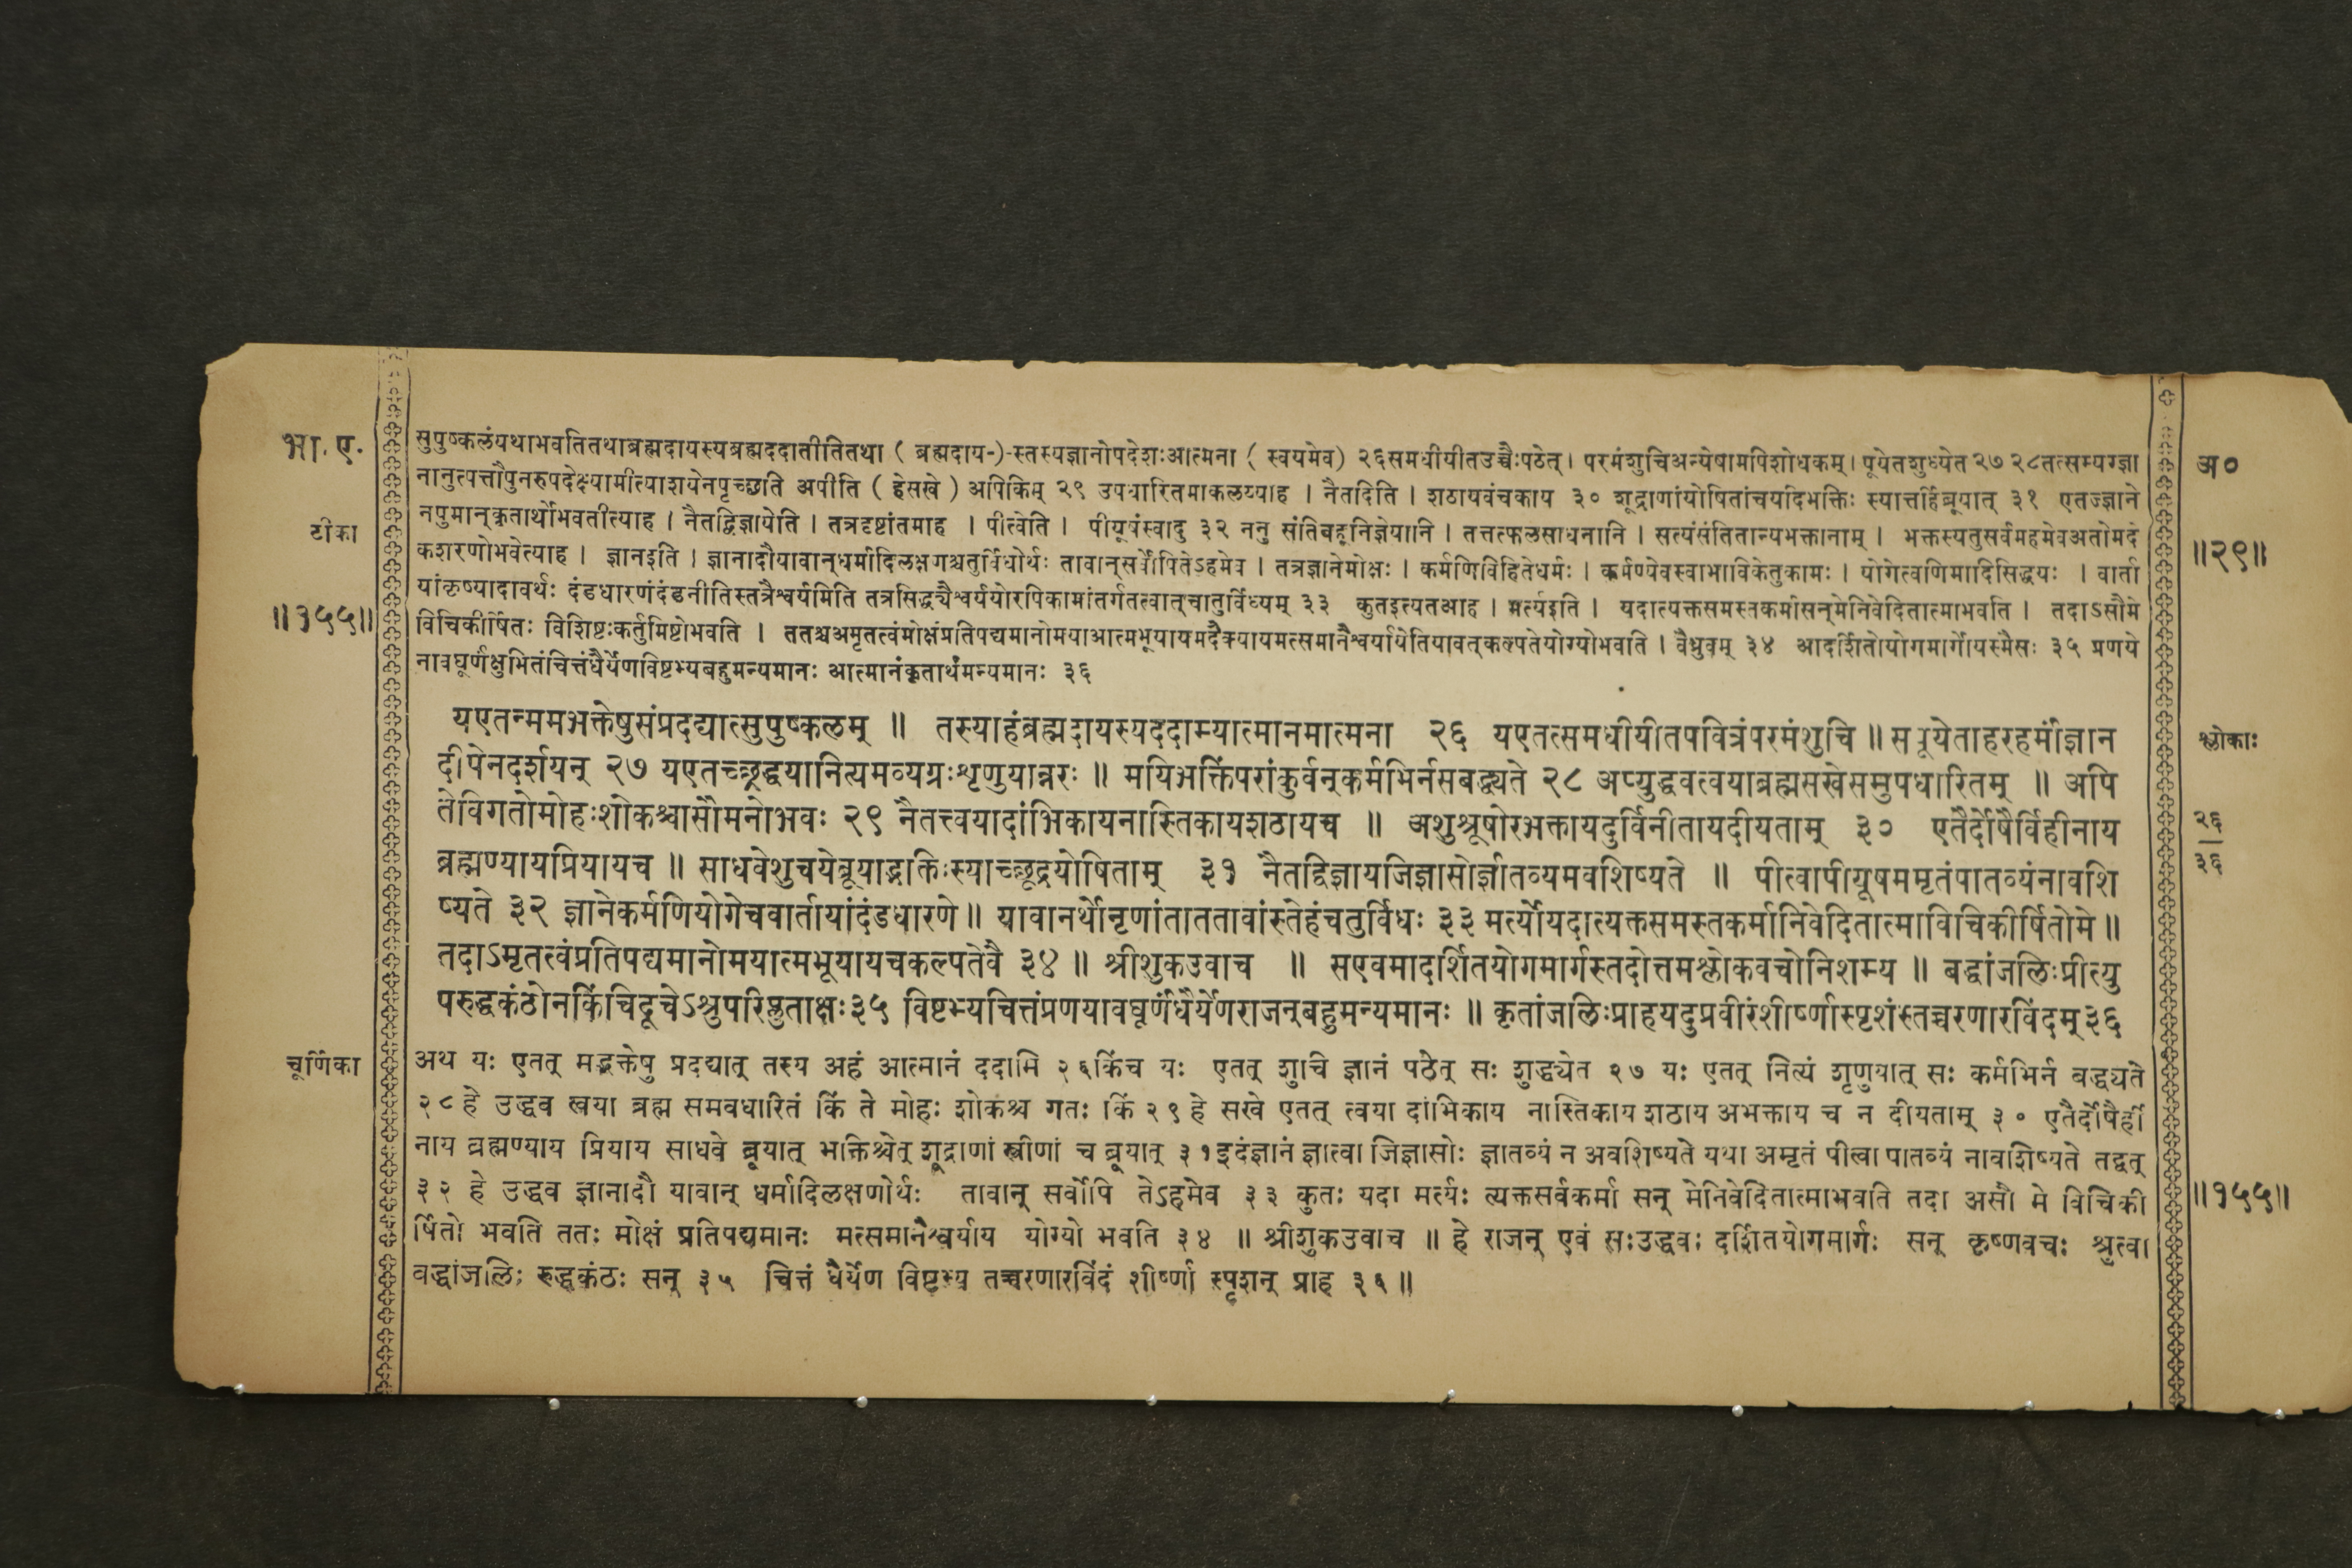 भा. ए.
सुपुष्कलंयथाभवतितथाब्रह्मदायस्यब्रह्मददातीतितथा ( ब्रह्मदाय-)-स्तस्यज्ञानोपदेशःआत्मना ( स्वयमेव) २६समधीयीतउच्चैःपठेत्। परमंशुचिअन्येषामपिशोधकम्। पूयेतशुध्येत २७ २८तत्सम्यग्ज्ञा
अ०
नानुत्पत्तौपुनरुपदेक्ष्यामीत्याशयेनपृच्छति अपीति ( हेसखे ) अपिकिम् २९ उपधारितमाकलय्याह । नैतदिति । शठायवंचकाय ३० शूद्राणांयोषितांचयदिभक्तिः स्यात्तर्हिब्रूयात् ३१ एतज्ज्ञाने
टीका
नपुमान्कृतार्थोभवतीत्याह । नैतद्विज्ञायेति । तत्रदृष्टांतमाह । पीत्वेति । पीयूषंस्वादु ३२ ननु संतिबहूनिज्ञेयानि । तत्तत्फलसाधनानि । सत्यंसंतितान्यभक्तानाम् । भक्तस्यतुसर्वमहमेवअतोमदे
कशरणोभवेत्याह । ज्ञानइति । ज्ञानादौयावान्धर्मादिलक्षणश्चतुर्विधोर्थः तावान्सर्वोपितेऽहमेव । तत्रज्ञानेमोक्षः । कर्मणिविहितेधर्मः । कर्मण्येवस्वाभाविकेतुकामः । योगेत्वणिमादिसिद्धयः । वार्ता
॥२९॥
यांकृष्यादावर्थः दंडधारणंदंडनीतिस्तत्रैश्वर्यमिति तत्रसिद्ध्यैश्वर्ययोरपिकामांतर्गतत्वात्चातुर्विध्यम् ३३ कुतइत्यतआह । मर्त्यइति । यदात्यक्तसमस्तकर्मासन्मेनिवेदितात्माभवति । तदाऽसौमे
॥१५५॥
विचिकीर्षितः विशिष्टःकर्तुमिष्टोभवति । ततश्चअमृतत्वंमोक्षंप्रतिपद्यमानोमयाआत्मभूयायमदैक्यायमत्समानैश्वर्यायेतियावत्कल्पतेयोग्योभवति । वैध्रुवम् ३४ आदर्शितोयोगमार्गोयस्मैसः ३५ प्रणये
नावघूर्णंक्षुभितंचित्तंधैर्येणविष्टभ्यबहुमन्यमानः आत्मानंकृतार्थंमन्यमानः ३६
यएतन्ममभक्तेषुसंप्रदद्यात्सुपुष्कलम् ॥ तस्याहंब्रह्मदायस्यददाम्यात्मानमात्मना २६ यएतत्समधीयीतपवित्रंपरमंशुचि ॥ सपूयेताहरहर्मांज्ञान
श्लोकाः
दीपेनदर्शयन् २७ यएतच्छ्रद्धयानित्यमव्यग्रःशृणुयान्नरः ॥ मयिभक्तिंपरांकुर्वन्कर्मभिर्नसबद्ध्यते २८ अप्युद्धवत्वयाब्रह्मसखेसमुपधारितम् ॥ अपि
तेविगतोमोहःशोकश्चासौमनोभवः २९ नैतत्त्वयादांभिकायनास्तिकायशठायच ॥ अशुश्रूषोरभक्तायदुर्विनीतायदीयताम् ३० एतैर्दोषैर्विहीनाय
२६
३६
ब्रह्मण्यायप्रियायच ॥ साधवेशुचयेब्रूयाद्भक्तिःस्याच्छूद्रयोषिताम् ३१ नैतद्विज्ञायजिज्ञासोर्ज्ञातव्यमवशिष्यते ॥ पीत्वापीयूषममृतंपातव्यंनावशि
ष्यते ३२ ज्ञानेकर्मणियोगेचवार्तायांदंडधारणे ॥ यावानर्थोनृणांताततावांस्तेहंचतुर्विधः ३३ मर्त्योयदात्यक्तसमस्तकर्मानिवेदितात्माविचिकीर्षितोमे ॥
तदाऽमृतत्वंप्रतिपद्यमानोमयात्मभूयायचकल्पतेवै ३४ ॥ श्रीशुकउवाच ॥ सएवमादर्शितयोगमार्गस्तदोत्तमश्लोकवचोनिशम्य ॥ बद्धांजलिःप्रीत्यु
परुद्धकंठोनकिंचिदूचेऽश्रुपरिप्लुताक्षः३५ विष्टभ्यचित्तंप्रणयावघूर्णंधैर्येणराजन्बहुमन्यमानः ॥ कृतांजलिःप्राहयदुप्रवीरंशीर्ष्णास्पृशंस्तच्चरणारविंदम्३६
चूर्णिका
अथ यः एतत् मद्भक्तेषु प्रदद्यात् तस्य अहं आत्मानं ददामि २६किंच यः एतत् शुचि ज्ञानं पठेत् सः शुद्ध्येत २७ यः एतत् नित्यं शृणुयात् सः कर्मभिर्न बद्ध्यते
२८हे उद्धव त्वया ब्रह्म समवधारितं किं ते मोहः शोकश्च गतः किं २९हे सखे एतत् त्वया दांभिकाय नास्तिकाय शठाय अभक्ताय च न दीयताम् ३० एतैर्दोषैर्ही
नाय ब्रह्मण्याय प्रियाय साधवे ब्रूयात् भक्तिश्चेत् शूद्राणां स्त्रीणां च ब्रूयात् ३१इदंज्ञानं ज्ञात्वा जिज्ञासोः ज्ञातव्यं न अवशिष्यते यथा अमृतं पीत्वा पातव्यं नावशिष्यते तद्वत्
३२ हे उद्धव ज्ञानादौ यावान् धर्मादिलक्षणोर्थः तावान् सर्वोपि तेऽहमेव ३३ कुतः यदा मर्त्यः त्यक्तसर्वकर्मा सन् मेनिवेदितात्माभवति तदा असौ मे विचिकी
॥१५५॥
र्षितो भवति ततः मोक्षं प्रतिपद्यमानः मत्समानैश्वर्याय योग्यो भवति ३४ ॥ श्रीशुकउवाच ॥ हे राजन् एवं सःउद्धवः दर्शितयोगमार्गः सन् कृष्णवचः श्रुत्वा
बद्धांजलिः रुद्धकंठः सन् ३५ चित्तं धैर्येण विष्टभ्य तच्चरणारविंदं शीर्ष्णा स्पृशन् प्राह ३६॥